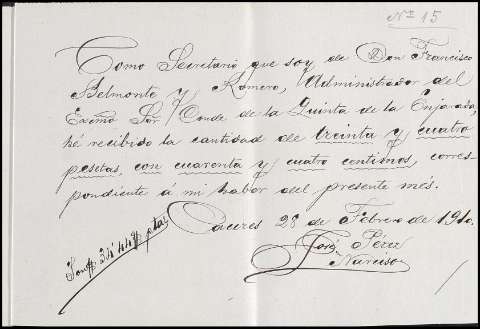 Nº 15
Como Secretario que soy de Don Francisco
Belmonte y Romero, Administrador del
Excmo Sor Conde de la Quinta de la Enjarada,
hé recibido la cantidad de treinta y cuatro
pesetas, con cuarenta y cuatro centimos, corres-
pondiente á mi haber del presente més.
Cáceres 28 de Febrero de 191
José Pérez
Narciso
Son 34'44 ptas